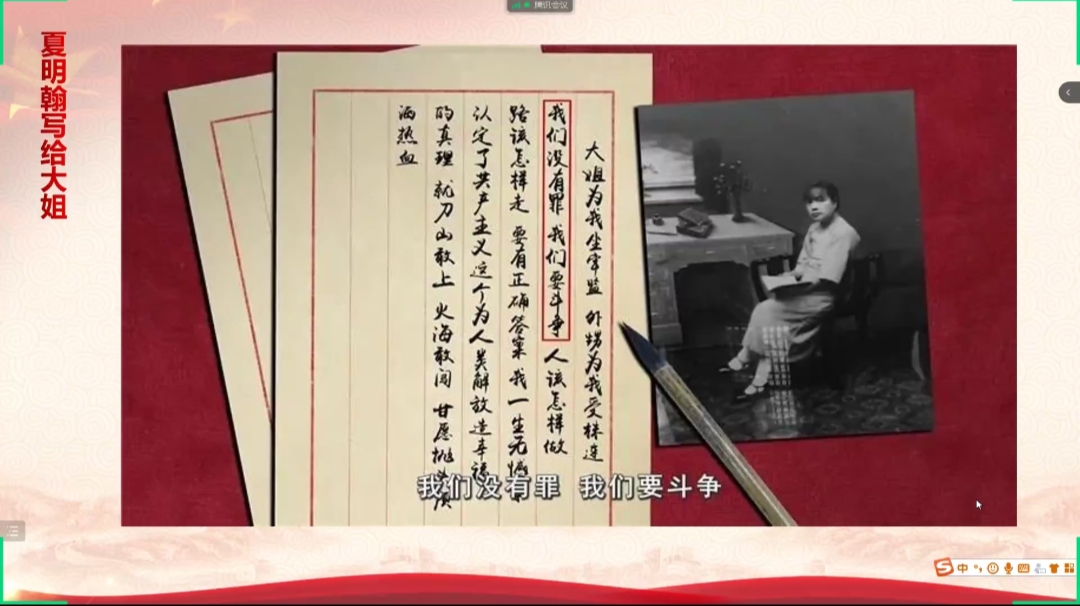 腾讯会议
夏明翰写给大姐
大姐为我坐牢监 外甥为我受株连
我们没有罪 我们要斗争 人该怎样做
路该怎样走 要有正确答案 我一生无憾
认定了共产主义这个为人类解放造幸福
的真理 就刀山敢上 火海敢闯 甘愿抛头颅
洒热血
我们没有罪 我们要斗争
中